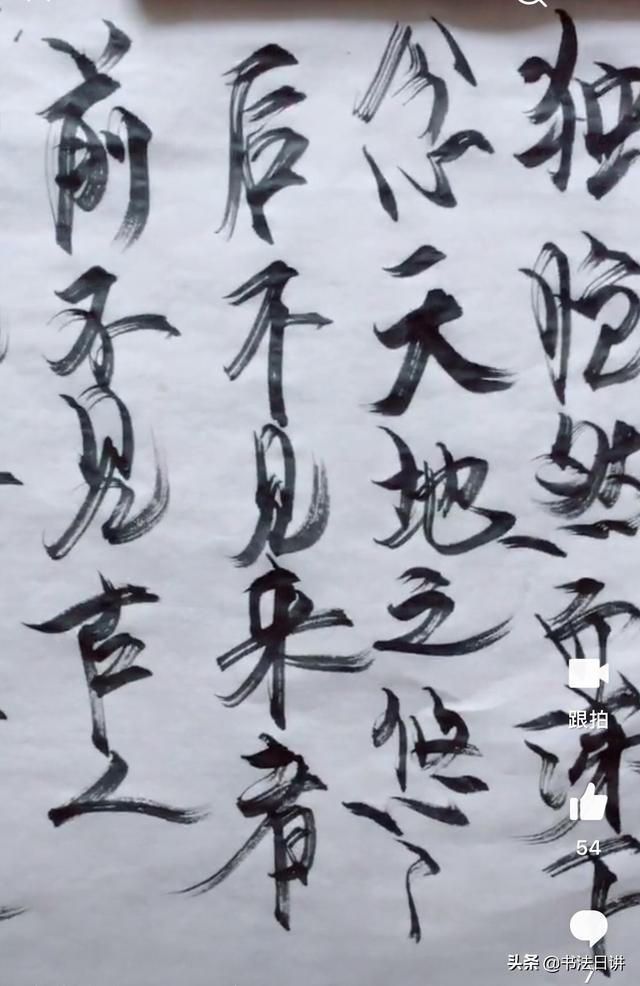 前不见古人
后不见来者
念天地之悠々
独怆然而涕下
跟拍
54
7
头条 @书法日讲